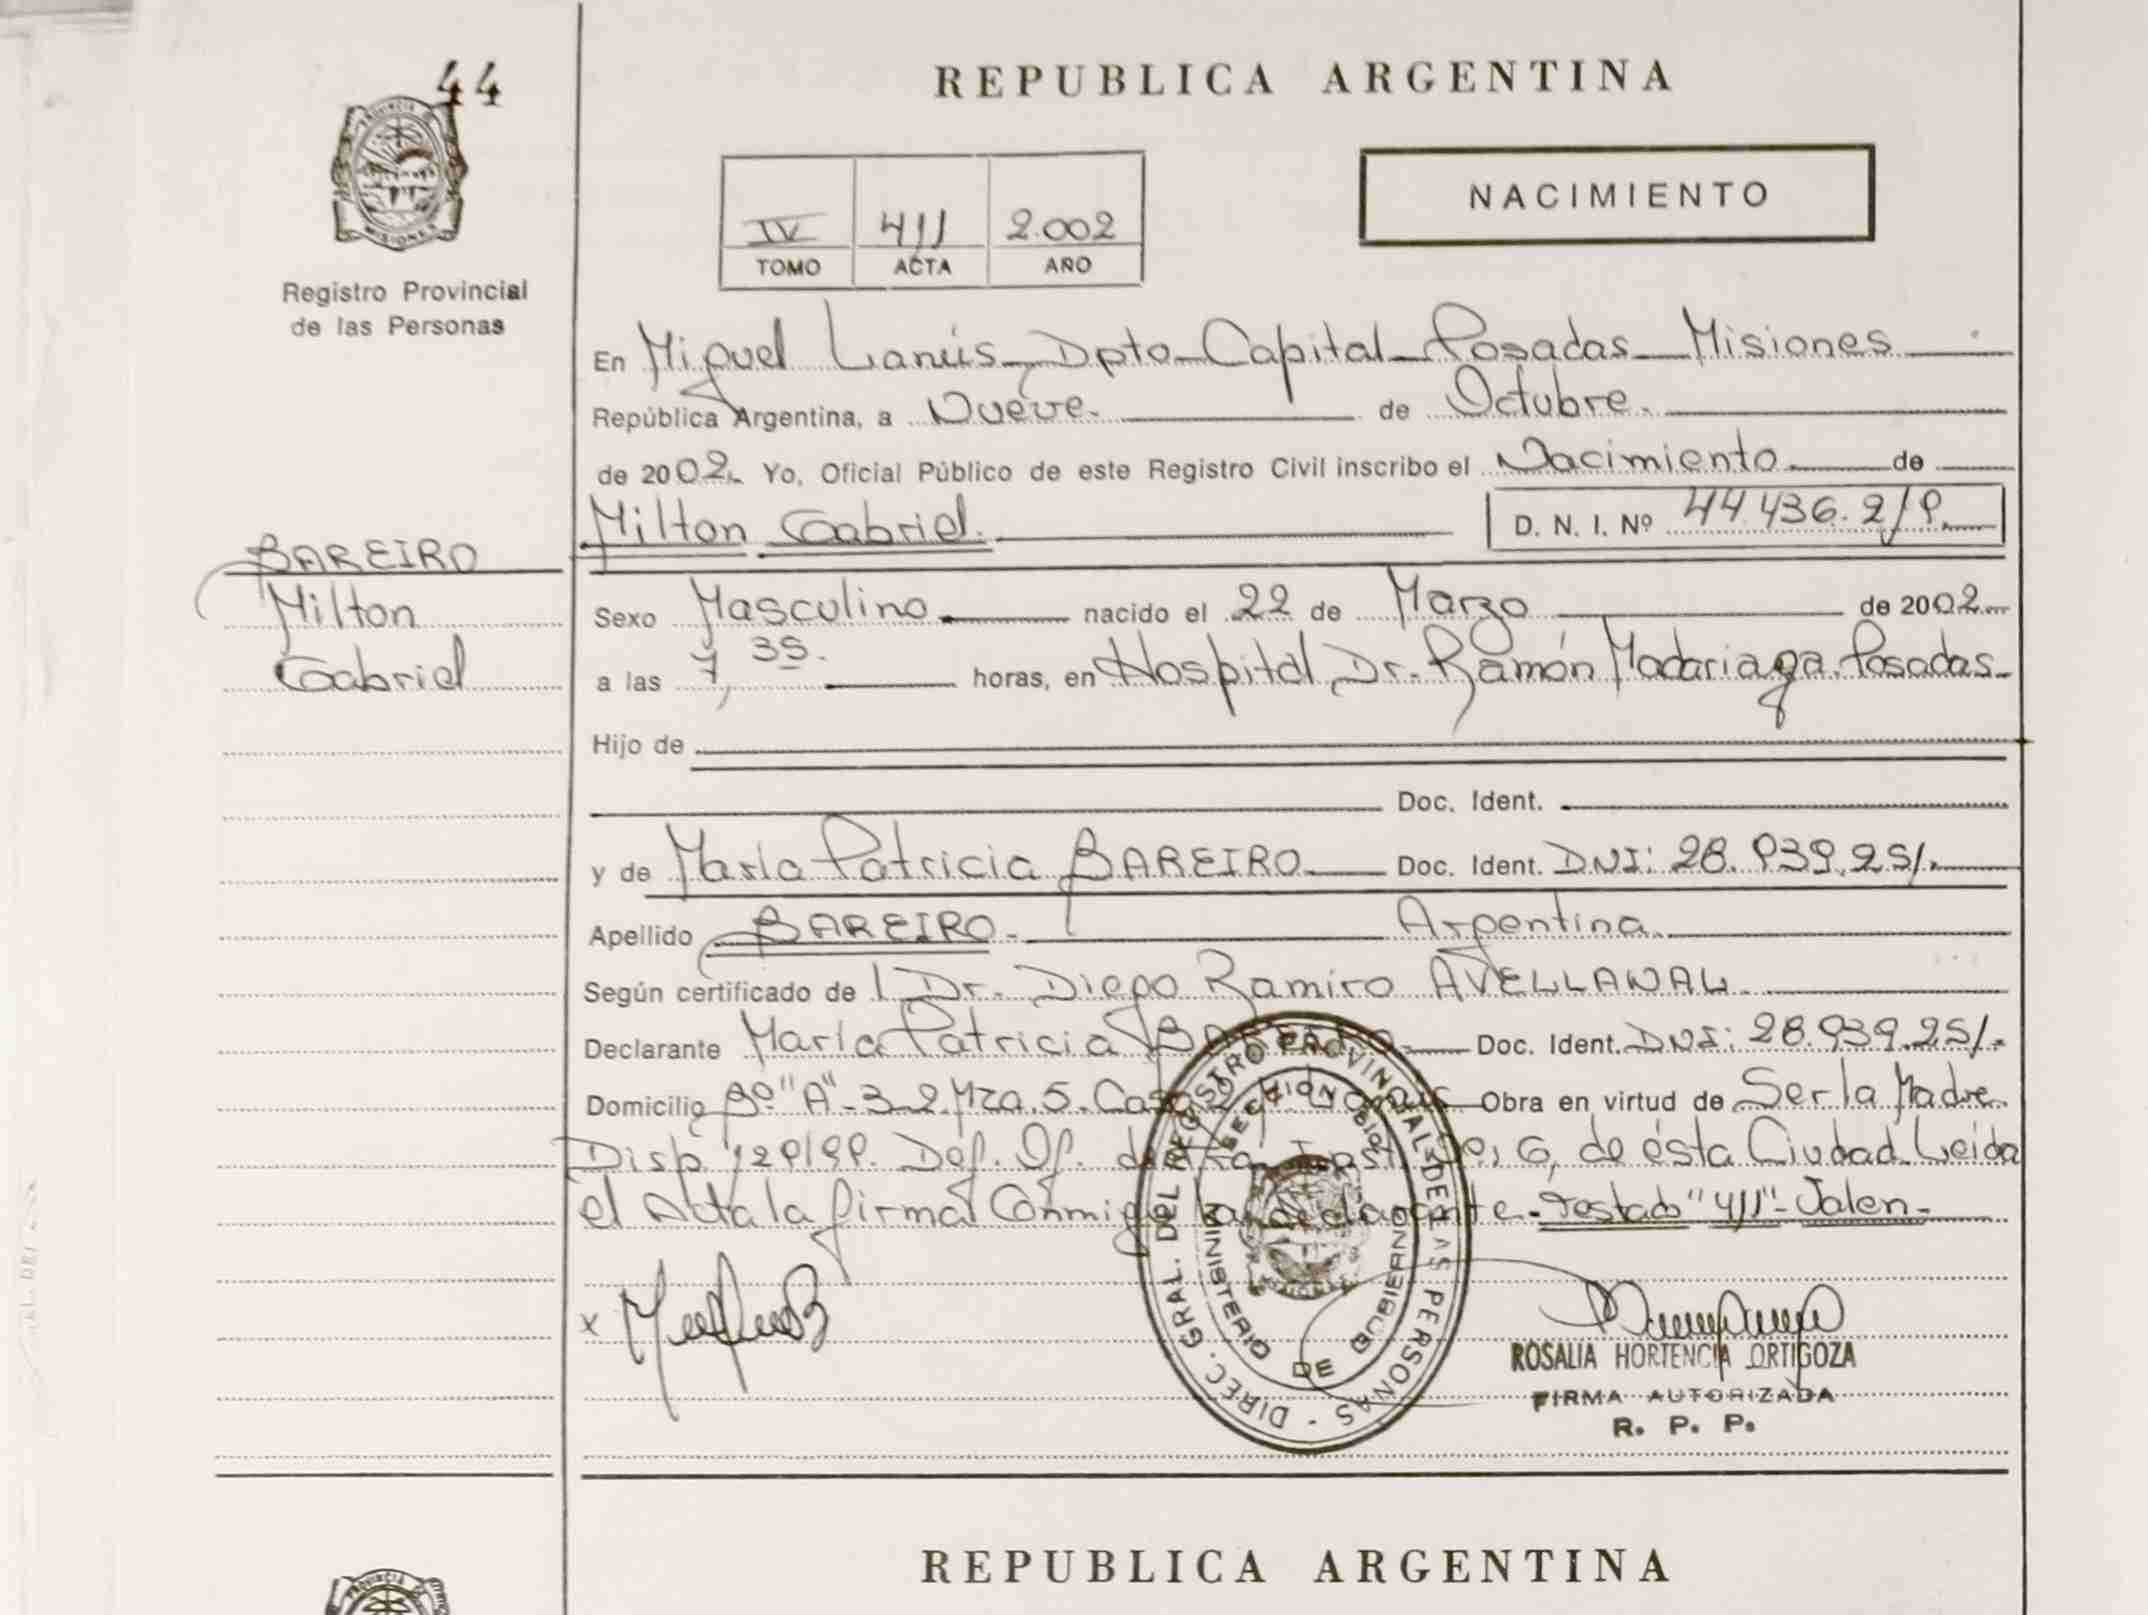 44
REPUBLICA ARGENTINA
PROVINCIA DE
MISIONES
Registro Provincial
de las Personas
NACIMIENTO
IV 411 2.002
TOMO ACTA AÑO
En Miguel Lanús Dpto Capital Posadas Misiones
República Argentina, a Nueve. de Octubre.
de 2002. Yo, Oficial Público de este Registro Civil inscribo el Nacimiento de
Milton Gabriel. D. N. I. Nº 44.436.219.
BAREIRO
Milton
Gabriel
Sexo Masculino nacido el 22 de Marzo de 2002
a las 7,35. horas, en Hospital Dr. Ramón Madariaga. Posadas
Hijo de
Doc. Ident.
y de María Patricia BAREIRO Doc. Ident. DNI: 28.939.251.
Apellido BAREIRO. Argentina.
Según certificado de Dr. Diego Ramiro AVELLANAL
Declarante María Patricia BAREIRO Doc. Ident. DNI: 28.939.251.
Domicilio Bº "A" 32 Mza. 5. Casa Obra en virtud de Ser la Madre.
Disp. Def. Of. de ésta Ciudad Leída
el Acta la firma Conmigo la declarante. Testado "411" Valen
DIREC. GRAL. DEL REGISTRO PROVINCIAL DE LAS PERSONAS
MINISTERIO DE GOBIERNO
ROSALIA HORTENCIA ORTIGOZA
FIRMA AUTORIZADA
R. P. P.
REPUBLICA ARGENTINA
PROVINCIA